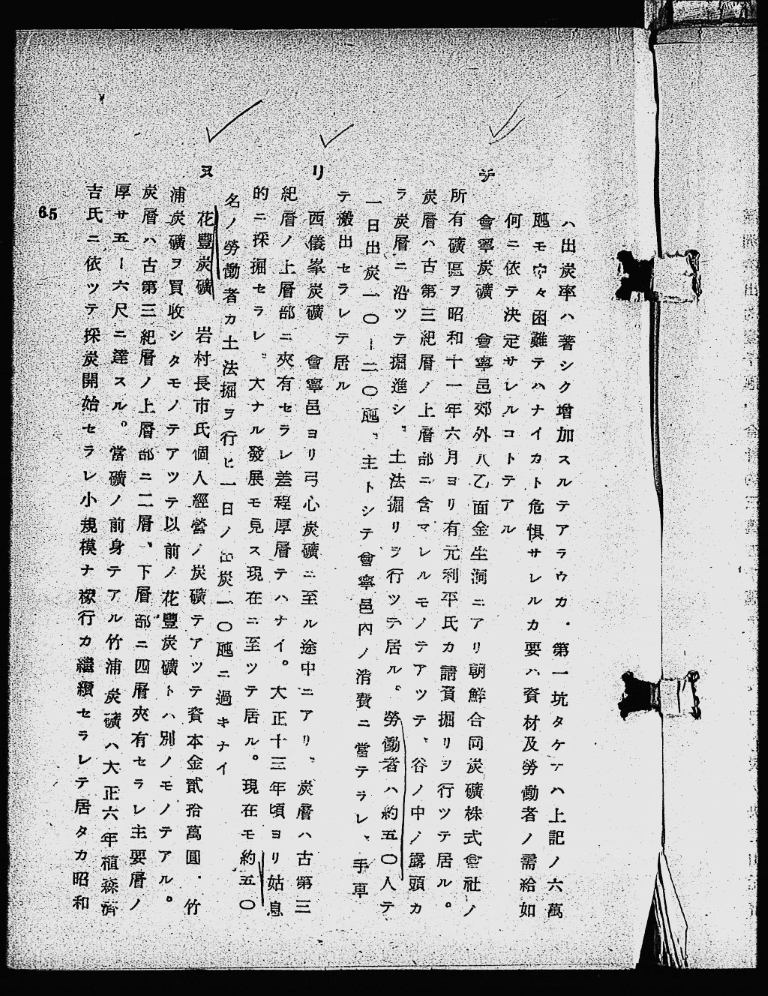 ハ出炭率ハ著シク増加スルテアラウカ・第一坑タケテハ上記ノ六萬
瓲モ中々困難テハナイカト危惧サレルカ要ハ資材及勞働者ノ需給如
何ニ依テ決定サレルコトテアル
チ
會寧炭礦 會寧邑郊外八乙面金生洞ニアリ朝鮮合同炭礦株式會社ノ
所有礦區ヲ昭和十一年六月ヨリ有元利平氏カ請負掘リヲ行ツテ居ル。
炭層ハ古第三紀層ノ上層部ニ含マレルモノテアツテ、谷ノ中ノ露頭カ
ラ炭層ニ沿ツテ掘進シ、土法掘リヲ行ツテ居ル。勞働者ハ約五〇人テ
一日出炭一〇―二〇瓲、主トシテ會寧邑内ノ消費ニ當テラレ、手車
テ搬出セラレテ居ル
リ
西儀峯炭礦 會寧邑ヨリ弓心炭礦ニ至ル途中ニアリ、炭層ハ古第三
紀層ノ上層部ニ夾有セラレ差程厚層テハナイ。大正十三年頃ヨリ姑息
的ニ採掘セラレ、大ナル發展モ見ス現在ニ至ツテ居ル。現在モ約五〇
名ノ勞働者カ土法掘ヲ行ヒ一日ノ出炭一〇瓲ニ過キナイ
ヌ
花豐炭礦 岩村長市氏個人經營ノ炭礦テアツテ資本金貳拾萬圓・竹
浦炭礦ヲ買收シタモノテアツテ以前ノ花豐炭礦トハ別ノモノテアル。
炭層ハ古第三紀層ノ上層部ニ二層、下層部ニ四層夾有セラレ主要層ノ
厚サ五―六尺ニ達スル。當礦ノ前身テアル竹浦炭礦ハ大正六年植森濟
吉氏ニ依ツテ採炭開始セラレ小規模ナ稼行カ繼續セラレテ居タカ昭和
65